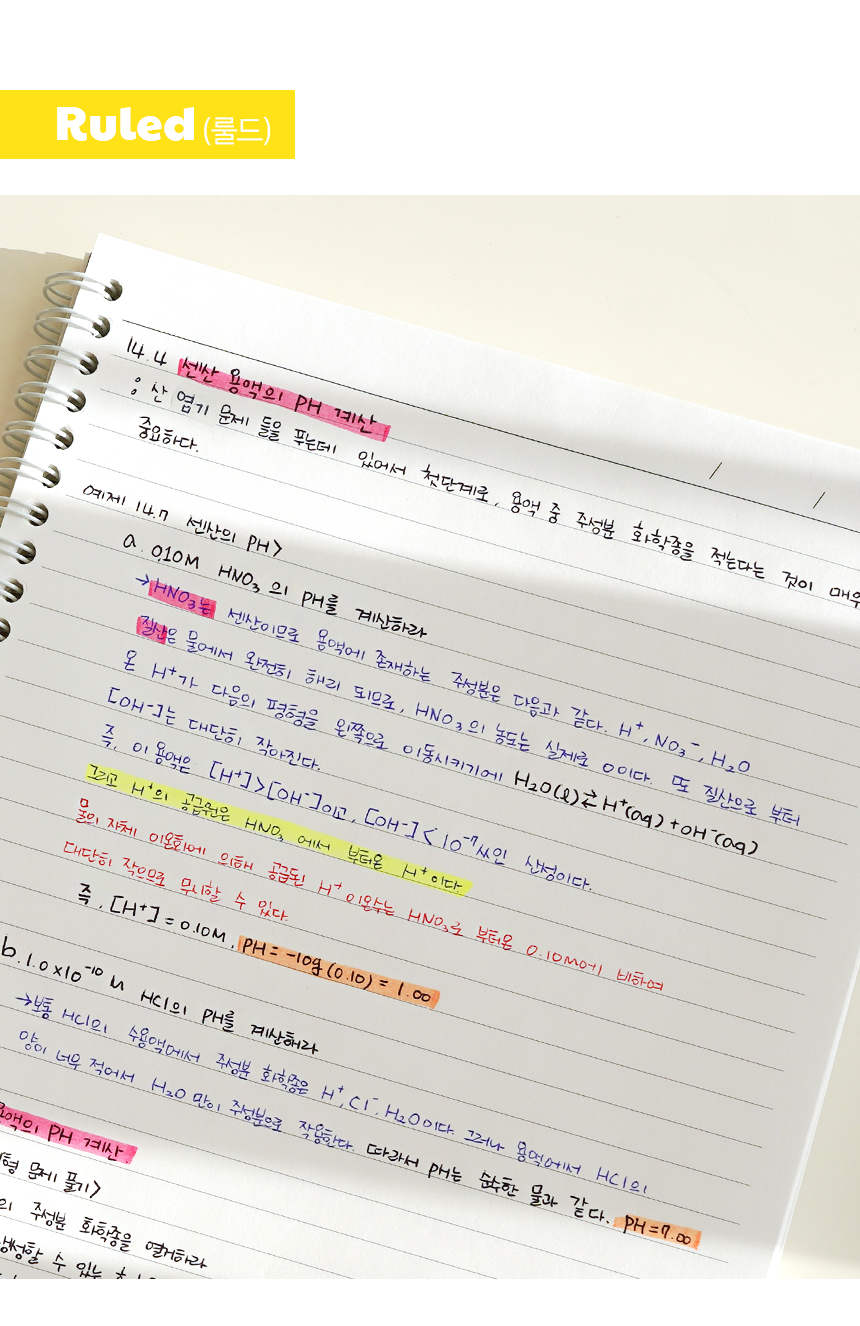 Ruled (룰드)
14.4 센산 용액의 PH 계산
: 산 염기 문제 들을 푸는데 있어서 첫단계로, 용액 중 주성분 화학종을 적는다는 것이 매우
중요하다.
예제 14.7 센산의 PH>
a. 0.10M HNO₃의 PH를 계산하라
→HNO₃는 센산이므로 용액에 존재하는 주성분은 다음과 같다. H⁺, NO₃⁻, H₂O
질산은 물에서 완전히 해리 되므로, HNO₃의 농도는 실제로 0이다. 또 질산으로 부터
온 H⁺가 다음의 평형을 왼쪽으로 이동시키기에 H₂O(l)⇄H⁺(aq)+OH⁻(aq)
[OH⁻]는 대단히 작아진다.
즉, 이 용액은 [H⁺]>[OH⁻]이고, [OH⁻]<10⁻⁷M인 산성이다.
그리고 H⁺의 공급원은 HNO₃에서 부터온 H⁺이다.
물의 자체 이온화에 의해 공급된 H⁺이온수는 HNO₃로 부터온 0.10M에 비하여
대단히 작으므로 무시할 수 있다.
즉, [H⁺]=0.10M, PH=-log(0.10)=1.00
b. 1.0×10⁻¹⁰M HCl의 PH를 계산해라
→보통 HCl의 수용액에서 주성분 화학종은 H⁺, Cl⁻, H₂O이다. 그러나 용액에서 HCl의
양이 너무 적어서 H₂O만이 주성분으로 작용한다. 따라서 PH는 순수한 물과 같다. PH=7.00
용액의 PH 계산
형 문제 풀기>
의 주성분 화학종을 열거하라
생성할 수 있는